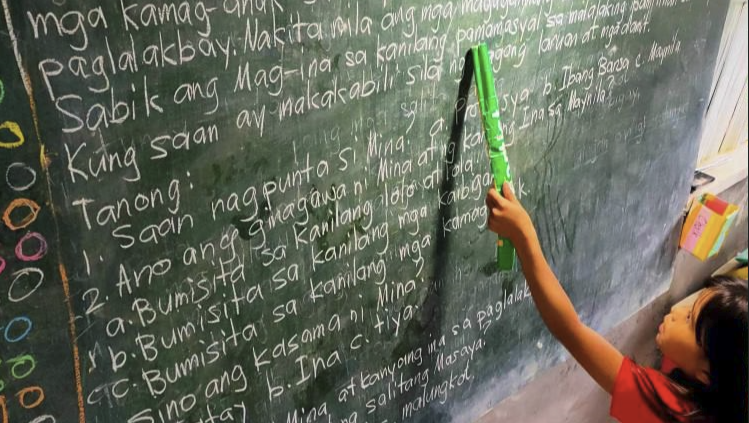 mga kamag-anak
paglalakbay. Nakita nila ang mga magagandang
Sabik ang Mag-ina sa kanilang pamamasyal sa malalaking
Kung saan ay nakakabili sila ng laruan at mga damit.
Tanong:
1. Saan nagpunta si Mina? a. b. Ibang Bansa c. Maynila
2. Ano ang ginagawa ni Mina at ng kanyang Ina sa Maynila?
a. Bumisita sa kanilang lolo at lola.
b. Bumisita sa kanilang mga kaibigan
c. Bumisita sa kanilang mga kamag
Sino ang kasama ni Mina?
b. Ina c. tiya.
Mina, at kanyang ina sa paglalak
salitang Masaya.
malungkot.